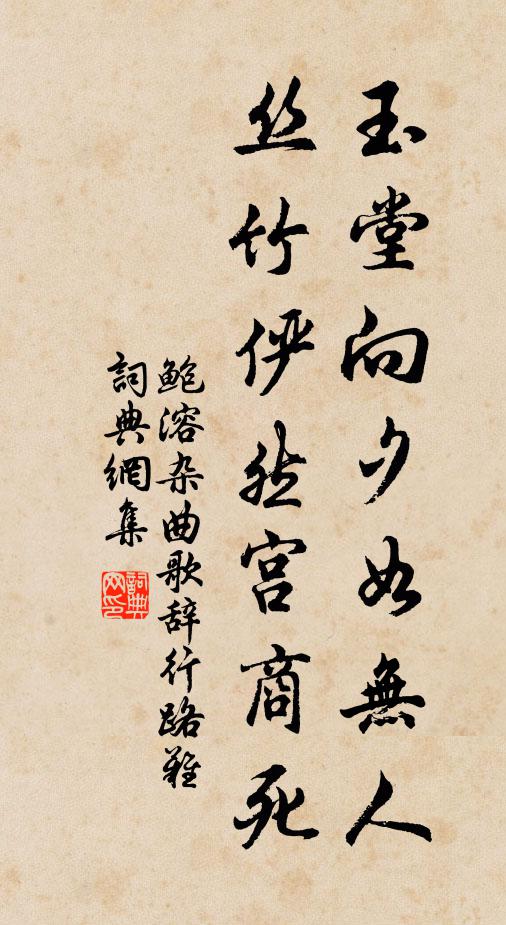 玉堂向夕如無人
丝竹俨然宫商死
鲍溶杂曲歌辞行路難
詞典網集
詞典网印